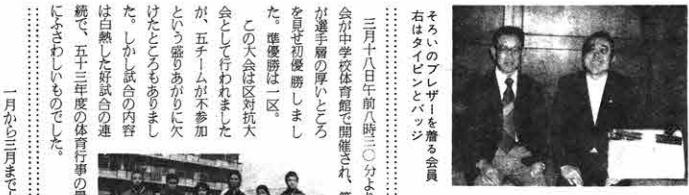 そろいのブレザーを着る会員
右はタイピンとバッジ
三月十八日午前八時三〇分より
会が中学校体育館で開催され、
が選手層の厚いところ
を見せ初優勝しまし
た。準優勝は一区。
この大会は区対抗大
会として行われました
が、五チームが不参加
という盛りあがりに欠
けたところもありまし
た。しかし試合の内容
は白熱した好試合の連
続で、五十三年度の体育行事の最
にふさわしいものでした。
一月から三月まで